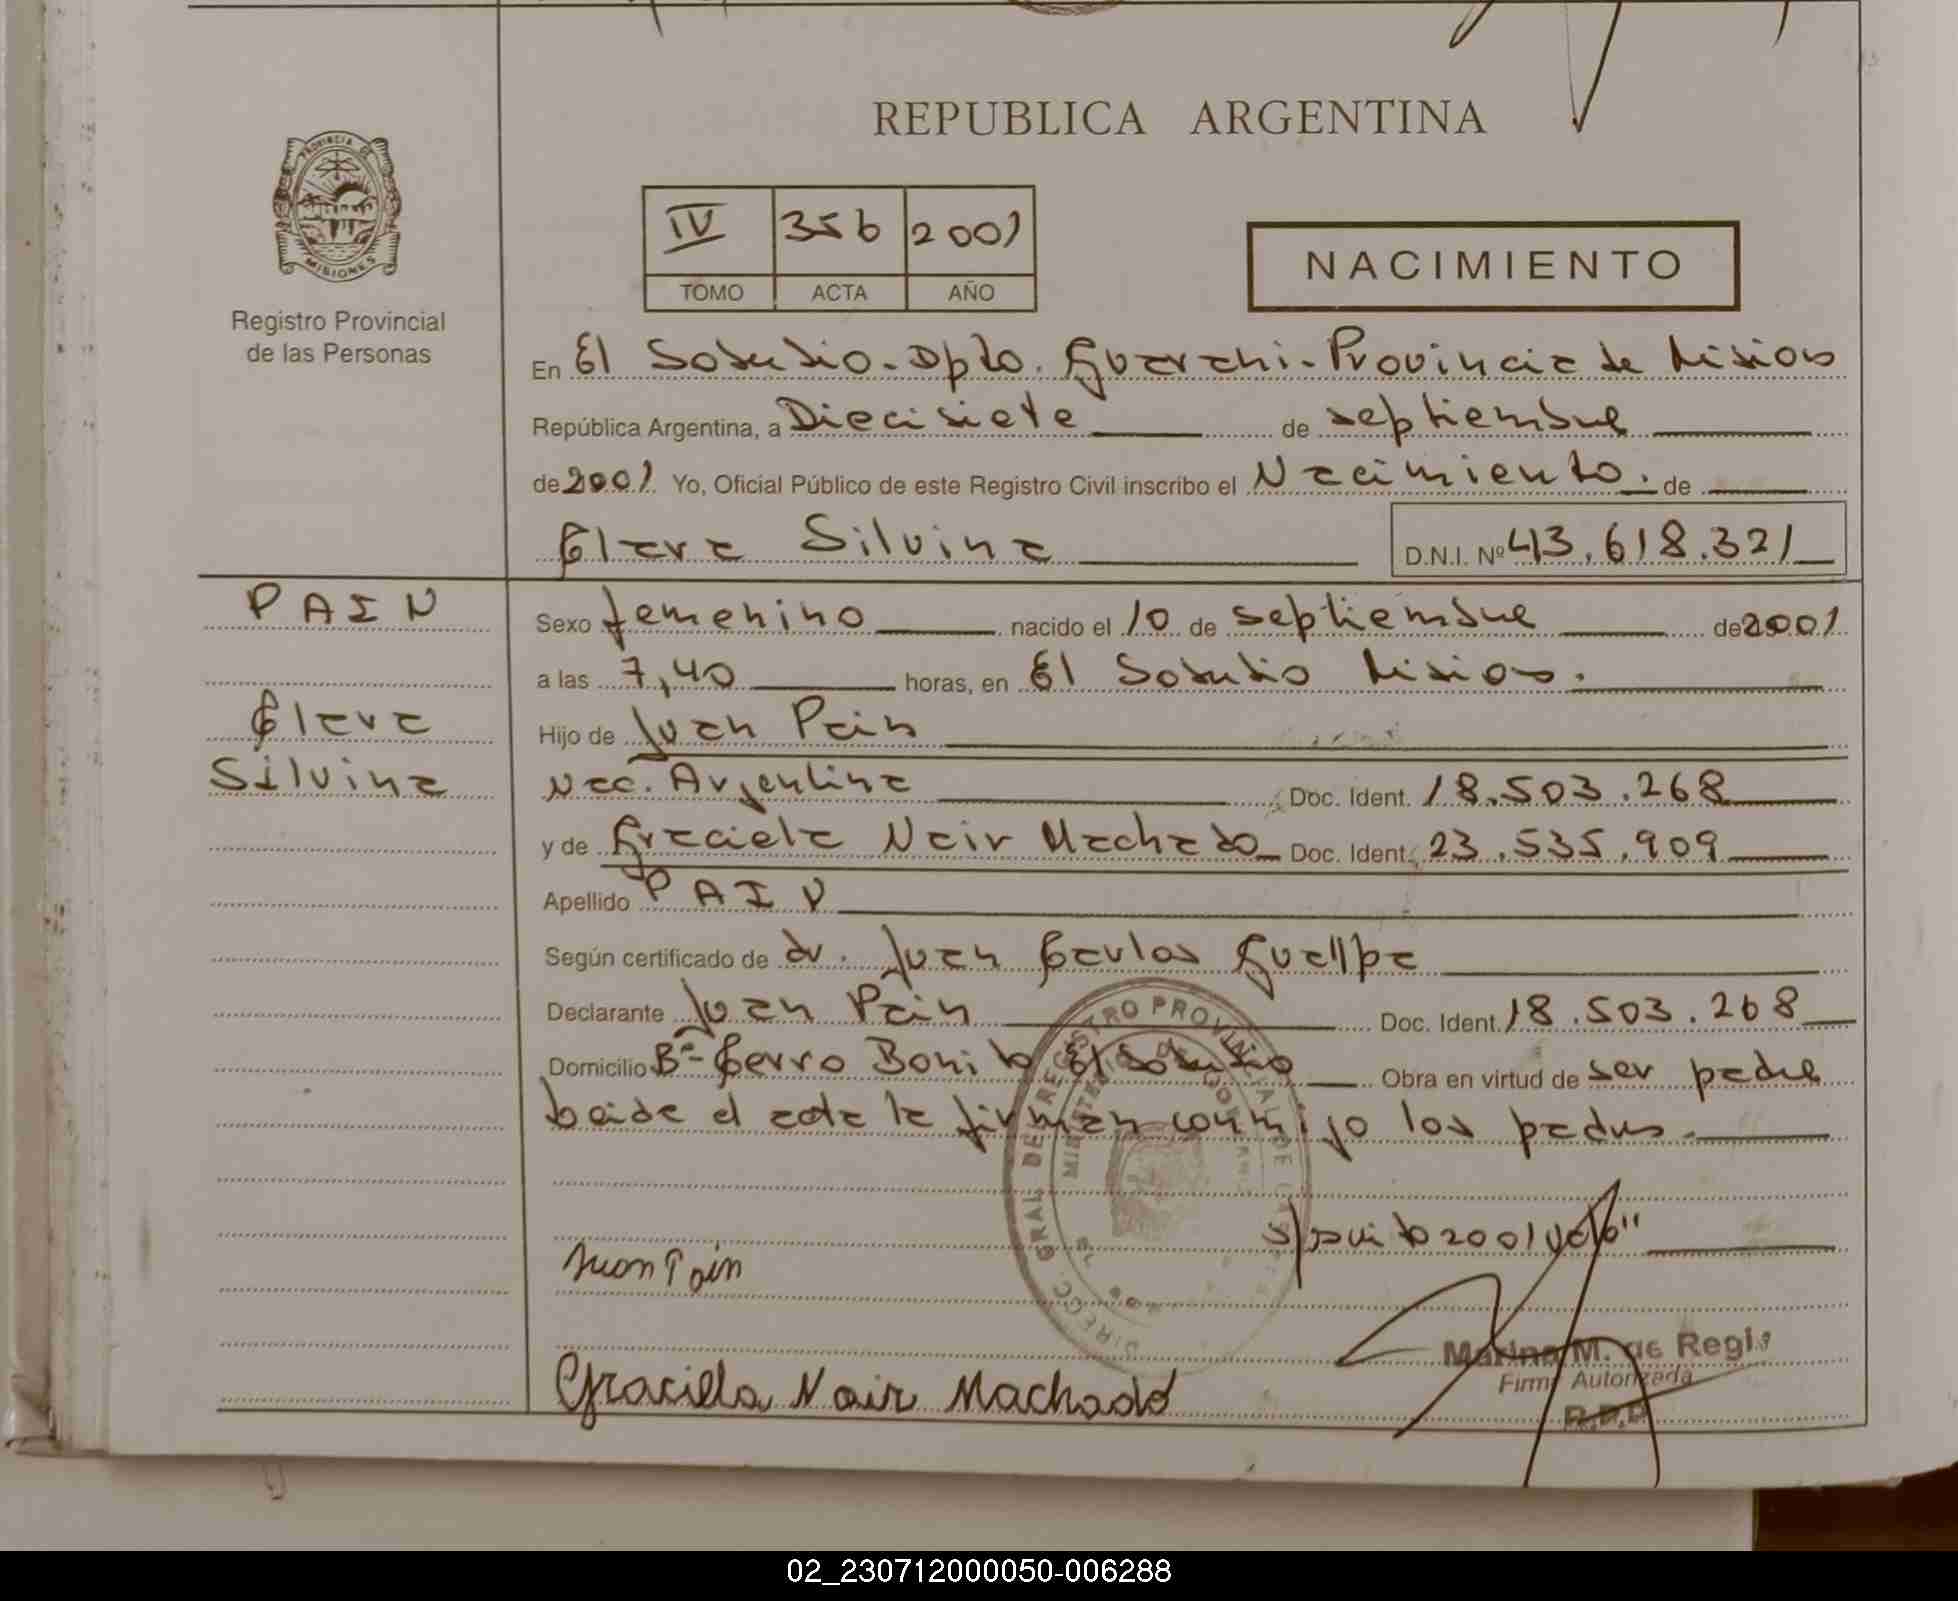 REPUBLICA ARGENTINA
PROVINCIA DE
MISIONES
Registro Provincial
de las Personas
IV 356 2001
TOMO ACTA AÑO
NACIMIENTO
En El Soberbio - Dpto. Guarani - Provincia de Misiones
República Argentina, a Diecisiete de septiembre
de 2001 Yo, Oficial Público de este Registro Civil inscribo el Nacimiento. de
Clara Silvina D.N.I. Nº 43.618.321
PAIN
Clara
Silvina
Sexo femenino nacido el 10 de septiembre de 2001
a las 7,40 horas, en El Soberbio Misiones.
Hijo de Juan Pain
Nac. Argentina Doc. Ident. 18.503.268
y de Graciela Nair Machado Doc. Ident. 23.535.909
Apellido PAIN
Según certificado de dr. Juan Carlos Guallpa
Declarante Juan Pain Doc. Ident. 18.503.268
Domicilio Bº- Cerro Bonito El Soberbio Obra en virtud de ser padre
leida el acta la firman conmigo los padres.
DIRECC. GRAL. DEL REGISTRO PROVINCIAL DE LAS
MINISTERIO DE GOBIERNO
2001 vale"
Juan Pain
Graciela Nair Machado
Marina M. de Regis
Firma Autorizada
R.P.P.
02_230712000050-006288